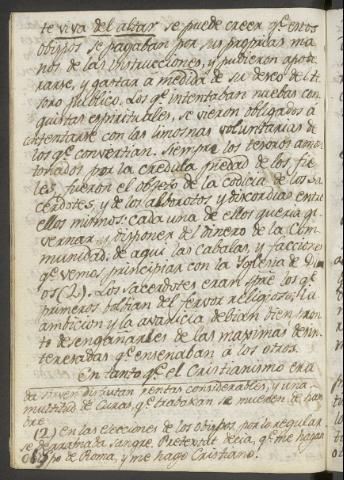 te viva del altar se puede creer qe. estos
obispos se pagaban por sus propias ma
nos de las instrucciones, y pudieron apode
rarse, y gastar a medida de su deseo del te
soro publico. Los qe. intentaban nuebas con
quistas espirituales, se vieron obligados á
contentarse con las limosnas voluntarias de
los qe. convertian. Siempre los tesoros amon
tonados por la credula piedad de los fie
les, fueron el objeto de la codicia de los Sa
cerdotes, y de los alborotos y discordias entre
ellos mismos: cada uno de ellos queria go
vernar, y disponer del dinero de la Com
munidad. de aqui las cabalas, y facciones
qe. vemos principiar con la Yglesia de Di
os (2). Los Sacerdotes eran spre. los qe.
primeros bolbian del fervor religioso; la
ambicion y la avaricia debian bien pron
to desengañarles de las maximas desin
teresadas qe. enseñaban á los otros.
En tanto qe. el Cristianismo era
da sirven disfrutan rentas considerables, y una
multitud de Curas, qe. trabajan se mueren de ham
bre.
(2) en las elecciones de los obispos, por lo regular
se derramaba sangre. Pretextat decia, qe. me hagan
obispo de Roma, y me hago Cristiano.